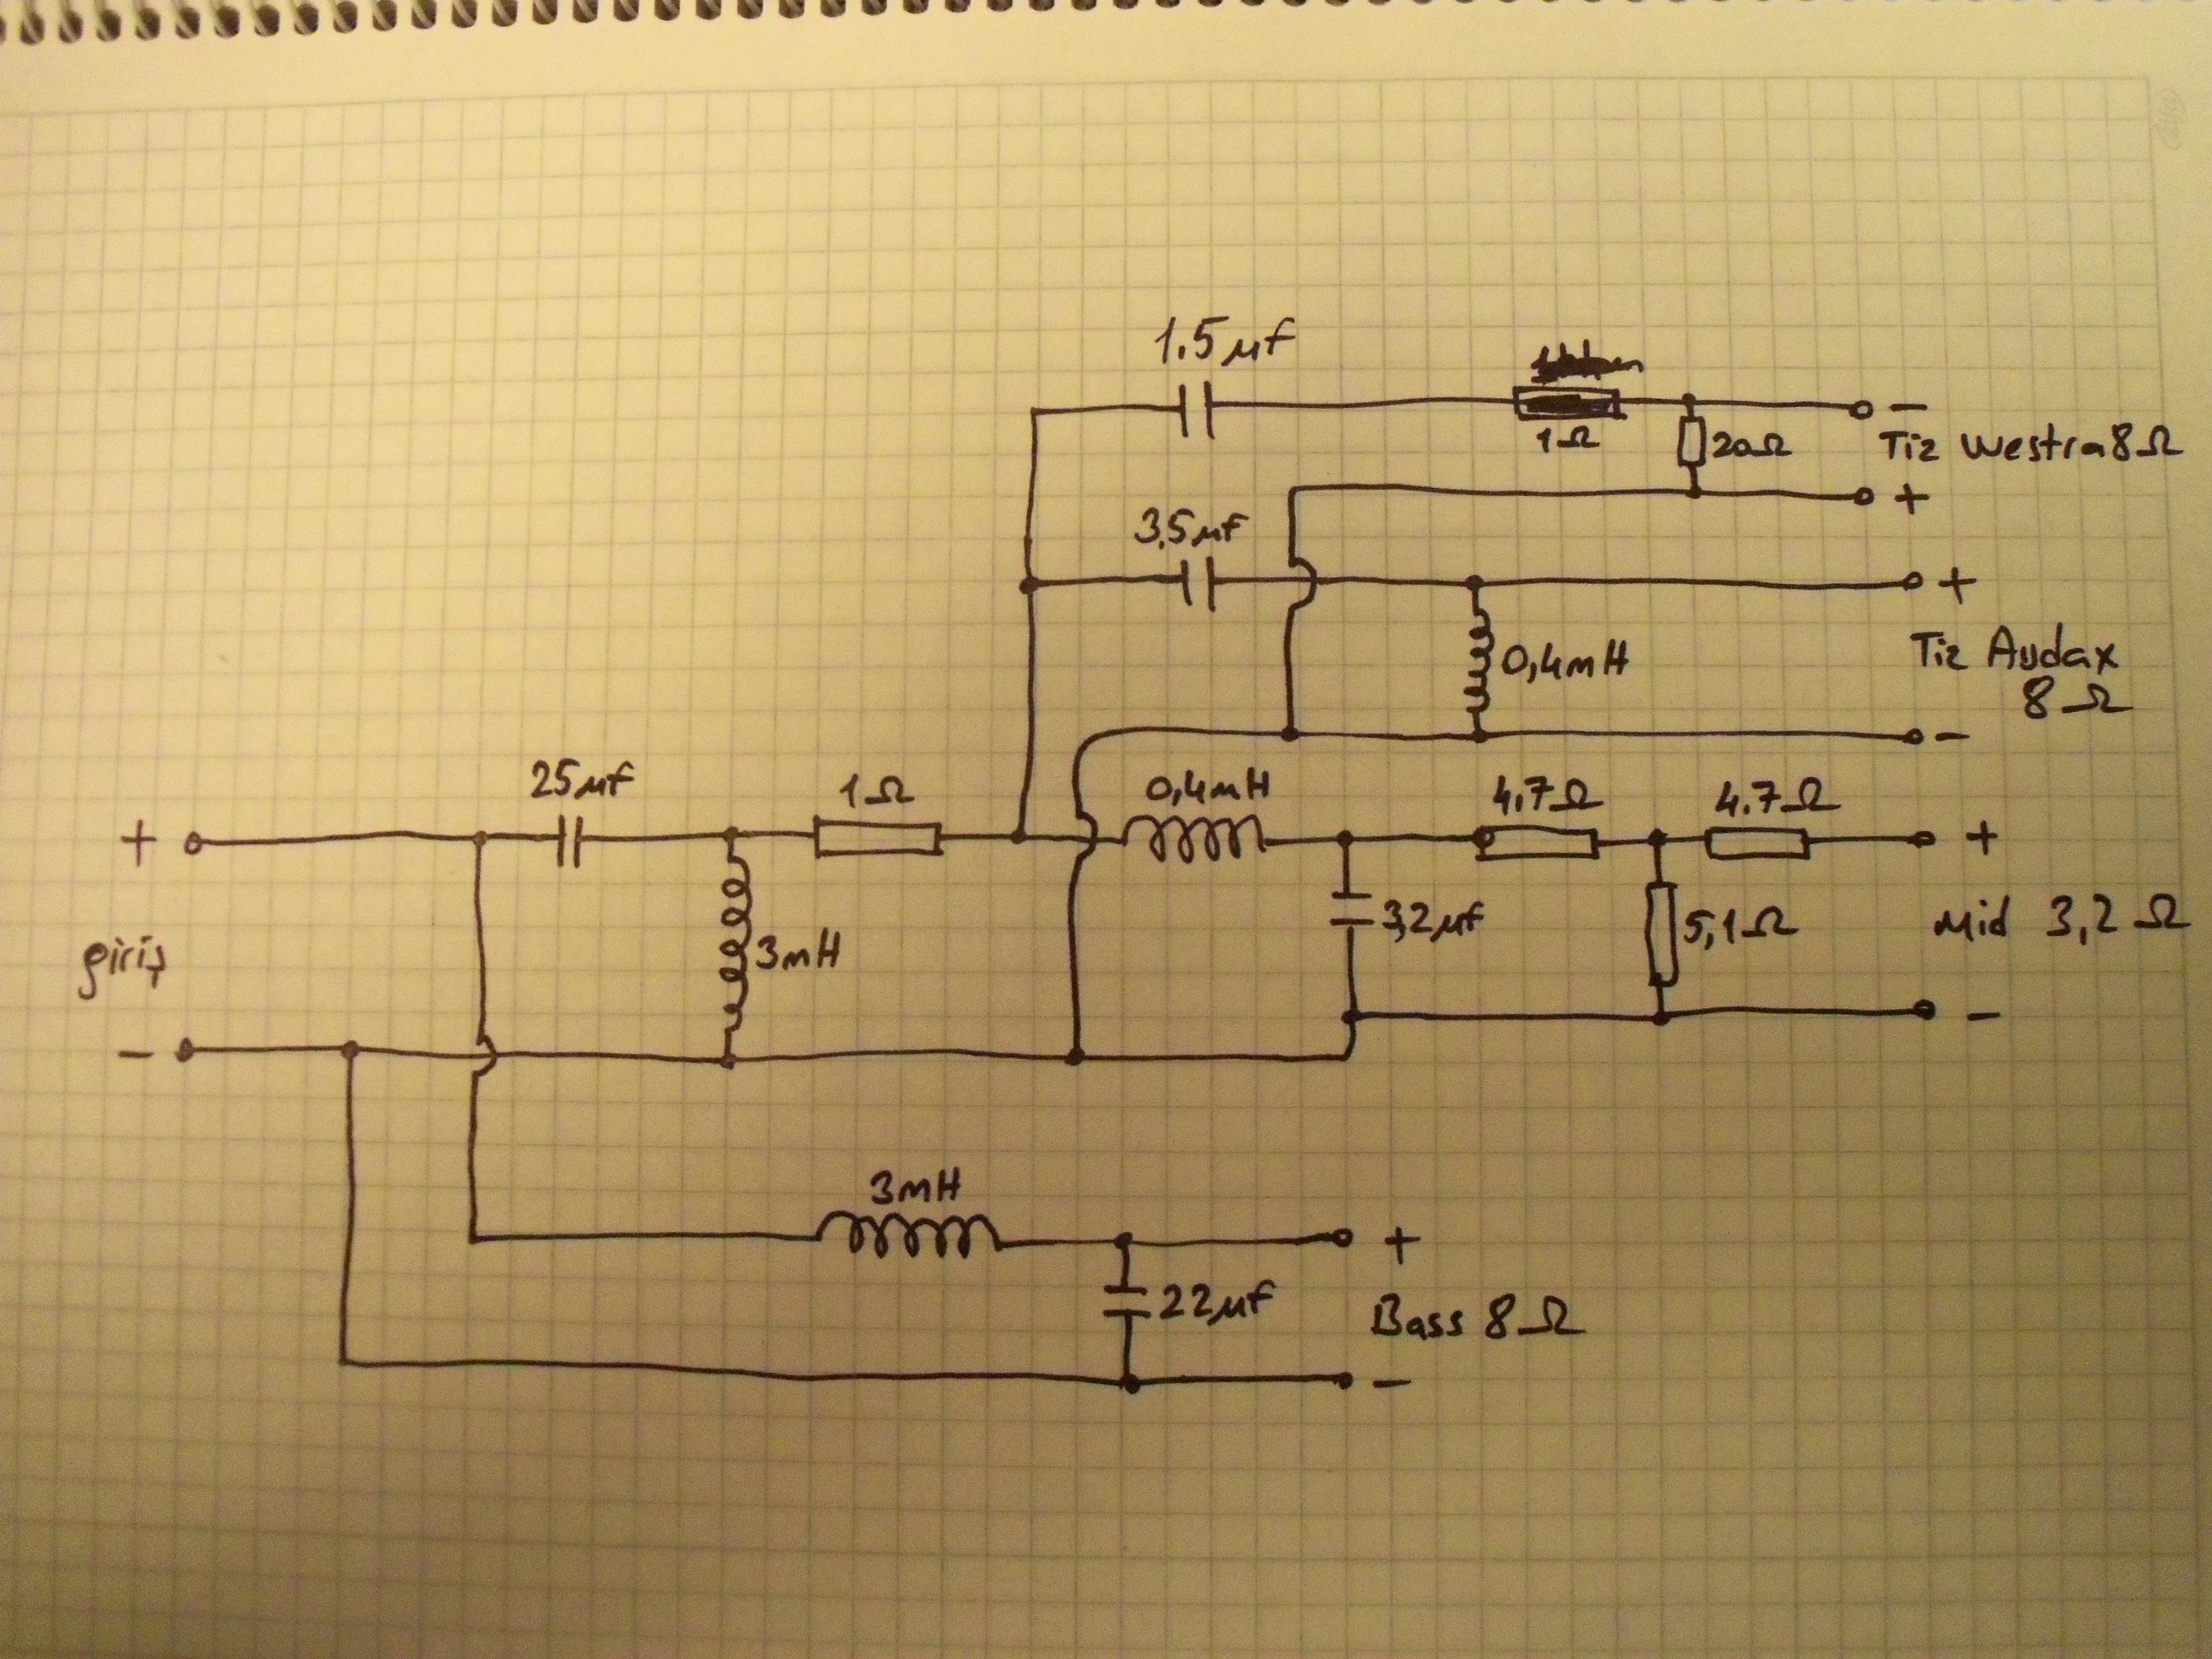 1.5µf
1Ω
20Ω
-
Tiz Westra 8Ω
+
3,5µf
+
0,4mH
Tiz Audax
8Ω
-
25µf
1Ω
0,4mH
4,7Ω
4.7Ω
+
+
giriş
3mH
3,2µf
5,1Ω
Mid 3,2Ω
-
-
3mH
+
22µf
Bass 8Ω
-